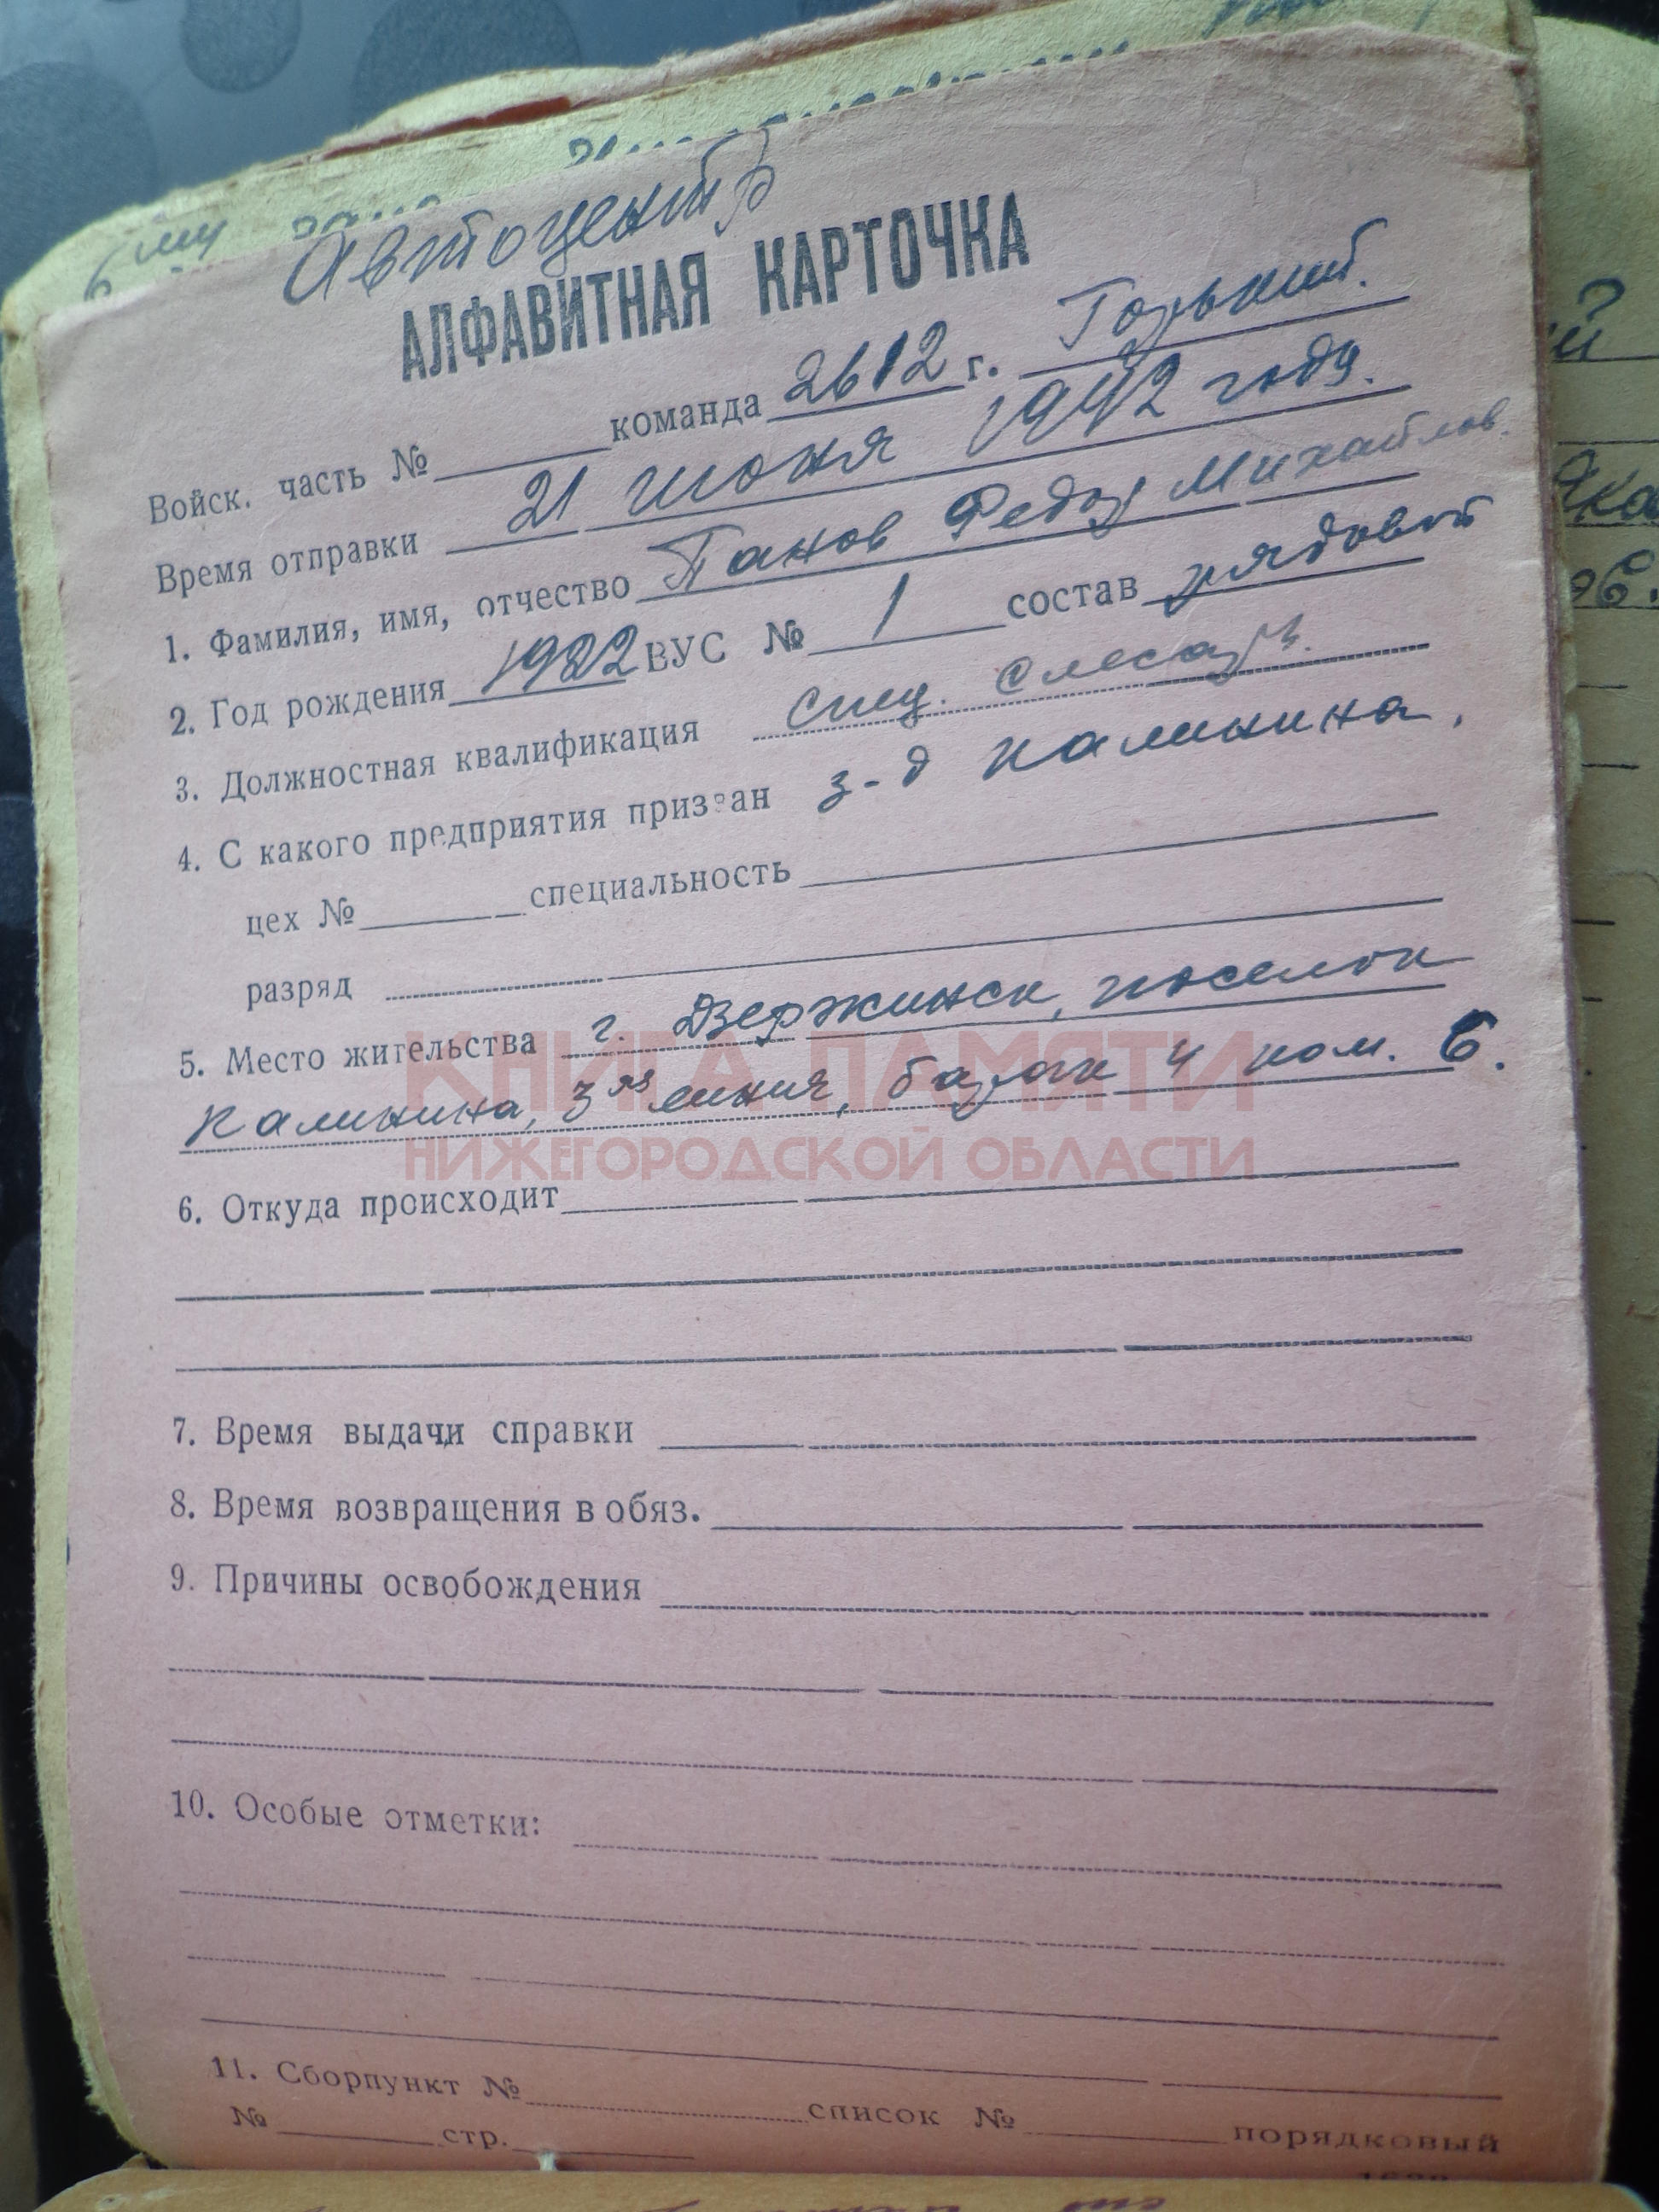 Автоцентр
АЛФАВИТНАЯ КАРТОЧКА
Войск. часть № команда 2612 г. Горький.
Время отправки 21 июня 1942 года.
1. Фамилия, имя, отчество Панов Федор Михайлов.
2. Год рождения 1922 ВУС № 1 состав рядовой
3. Должностная квалификация спец. слесарь.
4. С какого предприятия призван з-д Калинина.
цех № специальность
разряд
5. Место жительства г. Дзержинск, поселок
Калинина, 3я линия, барак 4 ком. 6.
КНИГА ПАМЯТИ
НИЖЕГОРОДСКОЙ ОБЛАСТИ
6. Откуда происходит
7. Время выдачи справки
8. Время возвращения в обяз.
9. Причины освобождения
10. Особые отметки:
11. Сборпункт № список № порядковый
№ стр.